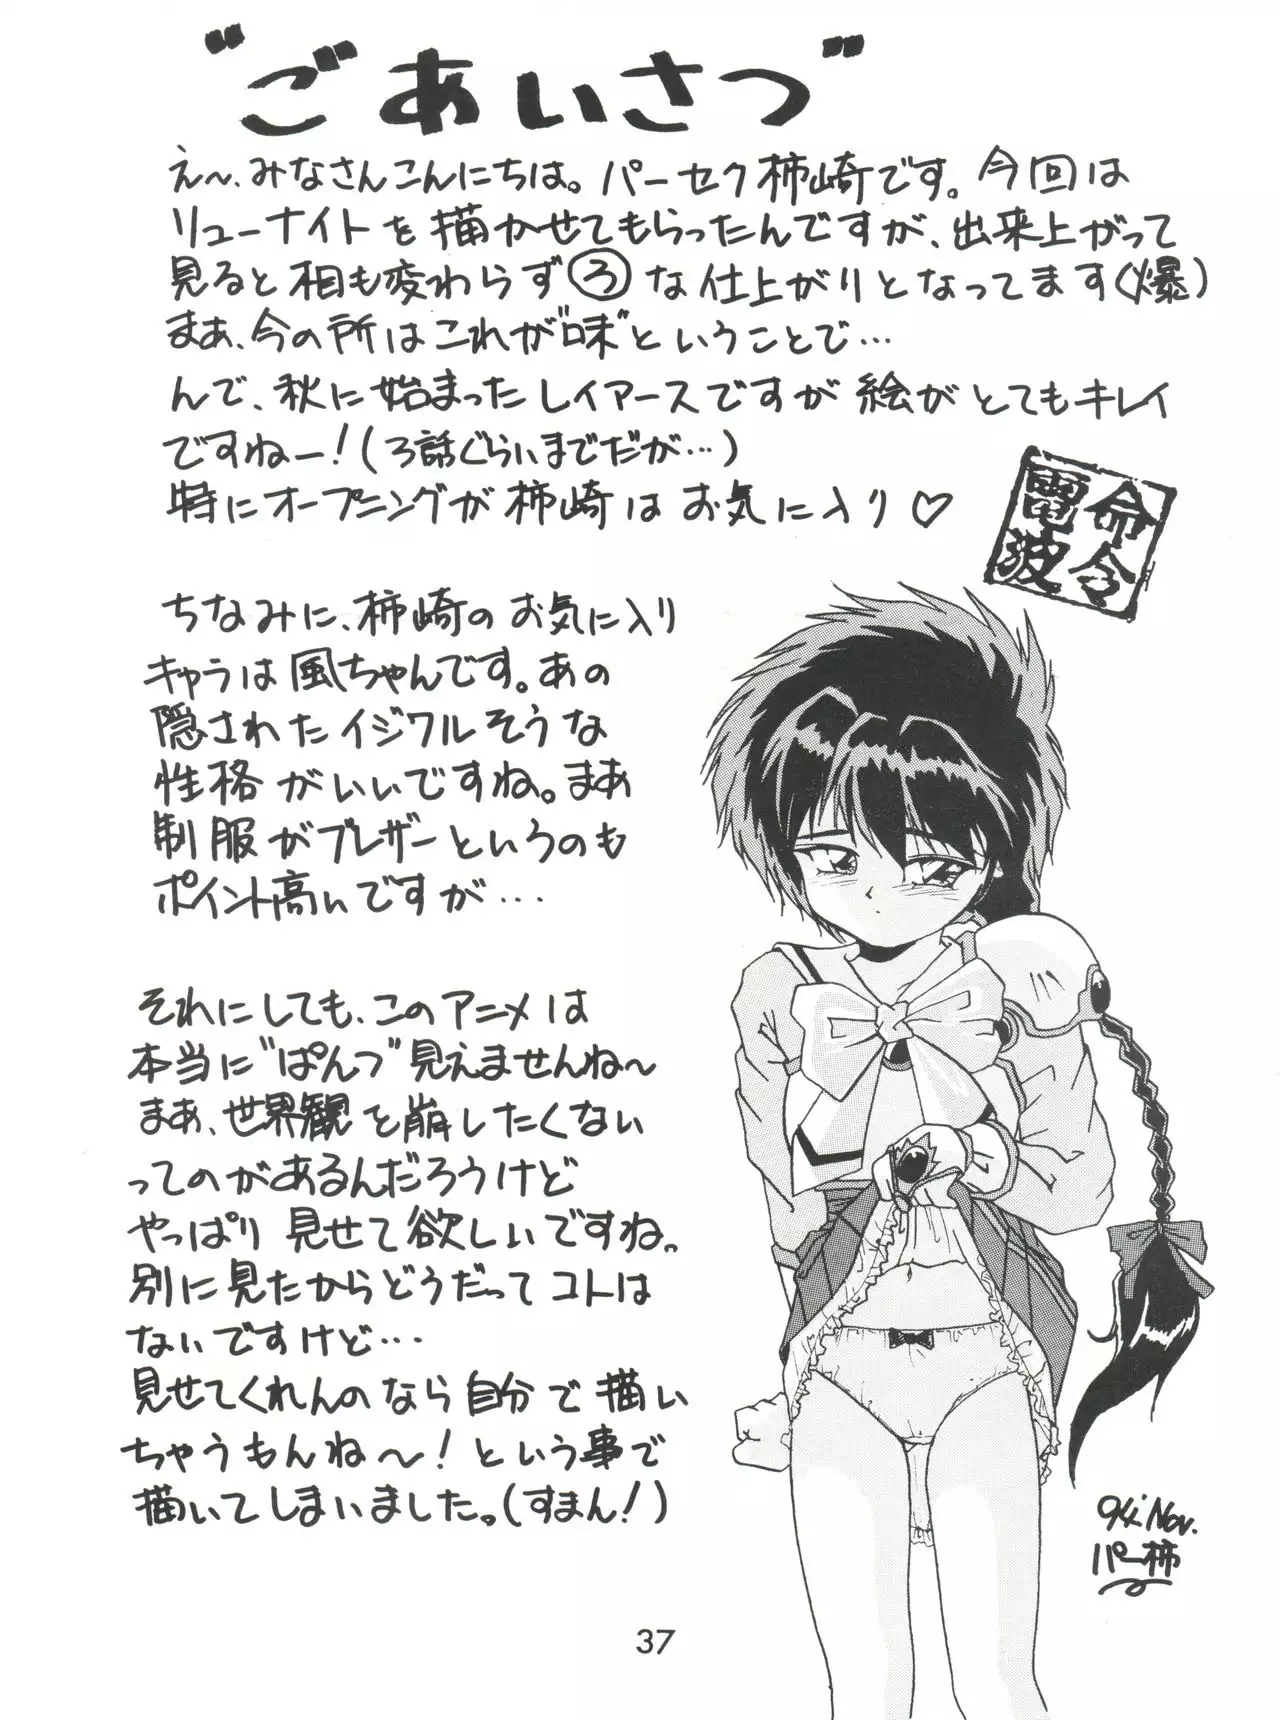 "ごあいさつ"
え〜、みなさんこんにちは。パーセク柿崎です。今回は
リューナイトを描かせてもらったんですが、出来上がって
見ると相も変わらずろな仕上がりとなってます(爆)
まあ、今の所はこれが"味"ということで…
んで、秋に始まったレイアースですが絵がとてもキレイ
ですねー!(3話ぐらいまでだが…)
特にオープニングが柿崎はお気に入り♡
命令
電波
ちなみに、柿崎のお気に入り
キャラは風ちゃんです。あの
隠されたイジワルそうな
性格がいいですね。まあ
制服がブレザーというのも
ポイント高いですが…
それにしても、このアニメは
本当に"ぱんつ"見えませんね〜
まあ、世界観を崩したくない
ってのがあるんだろうけど
やっぱり見せて欲しいですね。
別に見たからどうだってコトは
ないですけど…
見せてくれんのなら自分で描い
ちゃうもんね〜!という事で
描いてしまいました。(すまん!)
94' Nov.
パー柿
37